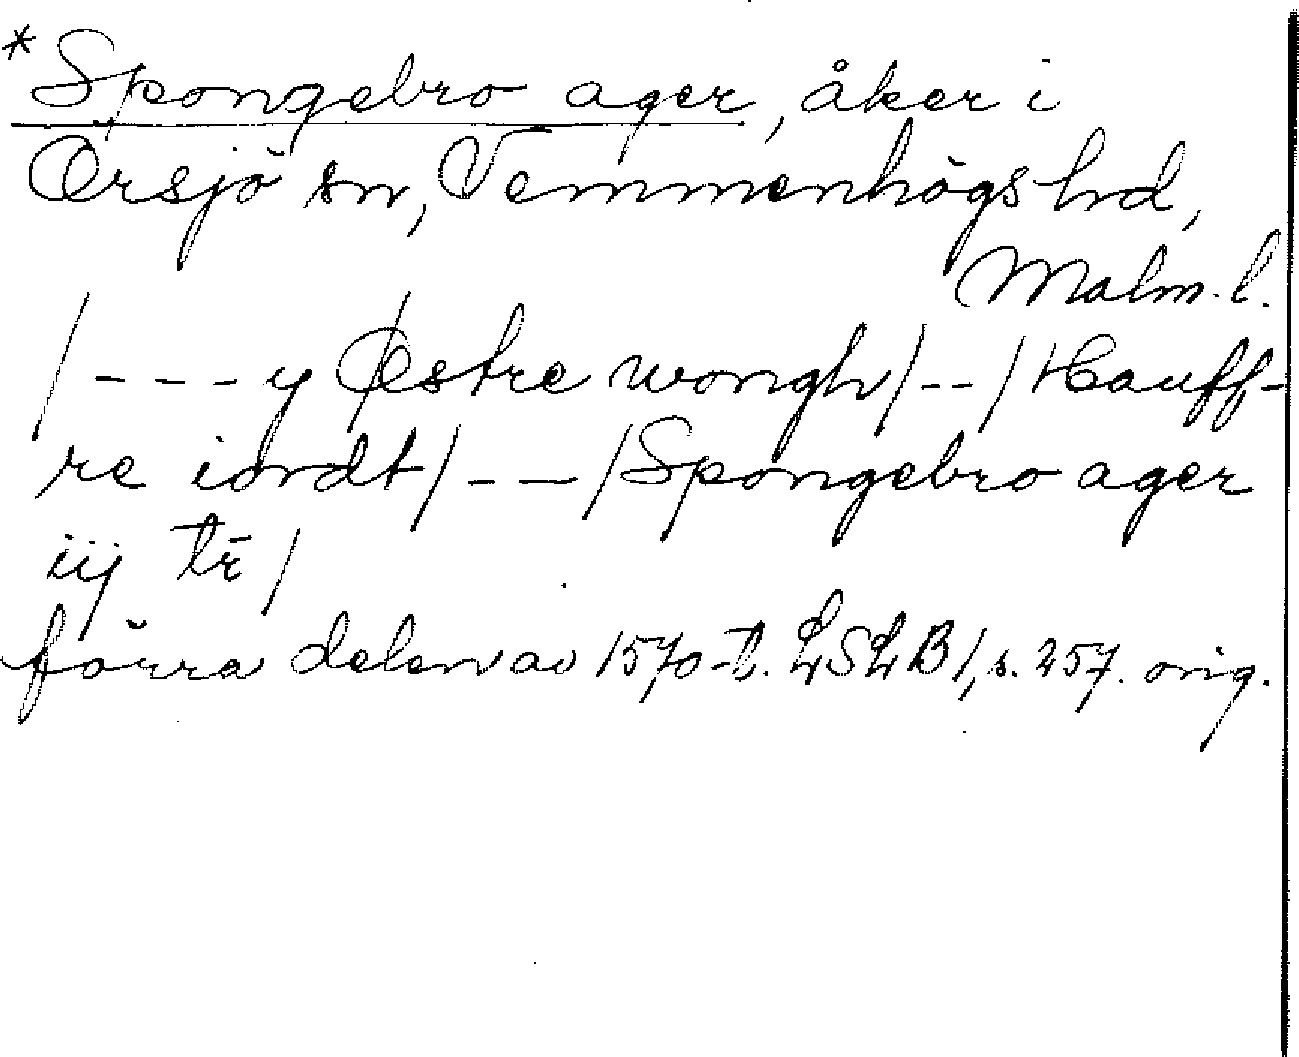 *Spongebro ager, åker i
Örsjö sn, Vemmenhögs hd,
Malm. l.
/ - - - y Østre wongh / - - / Hauff-
re iordt / - - / Spongebro ager
iij tr̄ /
förra delen av 1570-t. LSLB 1, s. 257. orig.